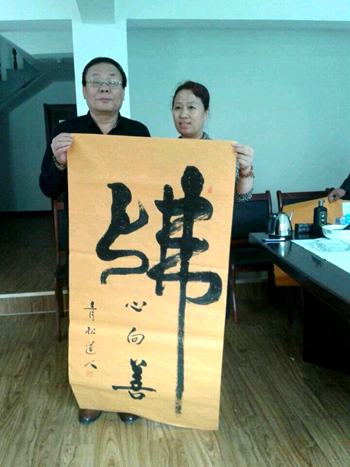 佛
心向善
青松道人